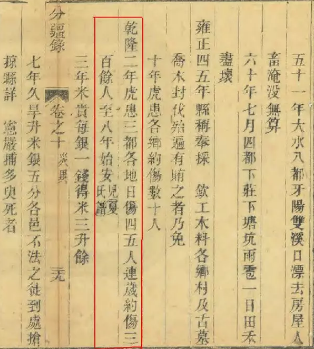 五十一年大水八都牙陽雙溪口漂去房屋人
畜淹没無算
六十年七月四都下莊下塘坑雨雹一日田禾
盡壞
雍正四五年縣稱奉採 欽工木料各鄉村及古墓
喬木封伐殆遍有賄之者乃免
十年虎患各鄉約傷數十人
乾隆二年虎患三都各地日傷四五人連歲約傷三
百餘人至八年始安
三年米貴每銀一錢得米三升餘
分疆錄
卷之十
七年久旱升米銀五分各邑不法之徒到處搶
掠縣詳 憲嚴捕多臾死者